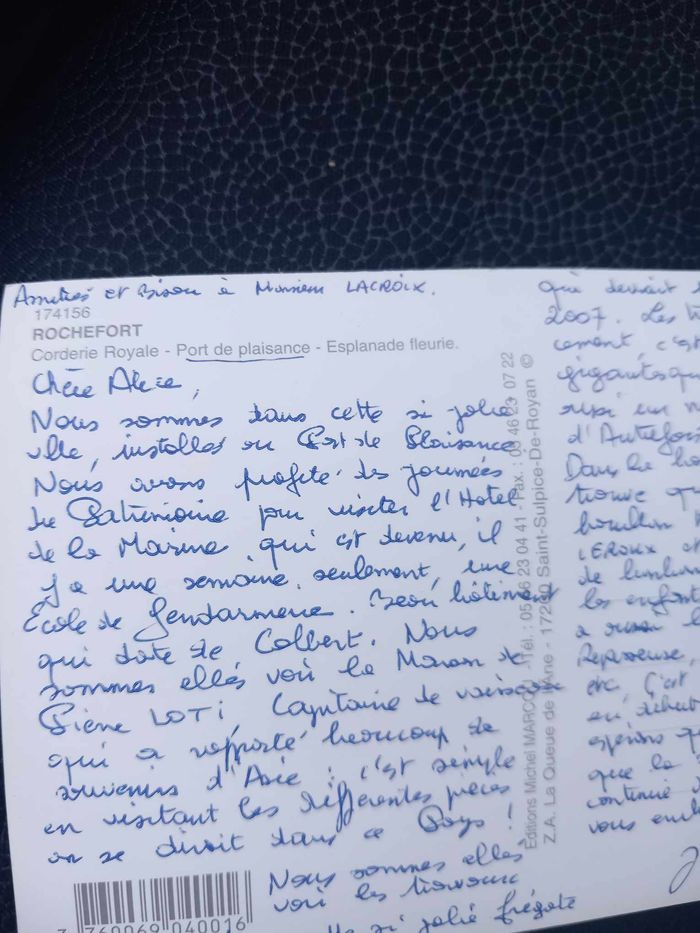 Amitiés et Bisou à Monsieur LACROIX.
174156
ROCHEFORT
Corderie Royale - Port de plaisance - Esplanade fleurie.
Chère Alice,
Nous sommes dans cette si jolie
ville, installés au Port de Plaisance
Nous avons profité des journées
du Patrimoine pour visiter l'Hotel
de la Marine, qui est devenu, il
y a une semaine, seulement, une
École de Gendarmerie. Beau bâtiment
qui date de Colbert. Nous
sommes allés voir la Maison de
Pierre LOTI, Capitaine de vaisseau
qui a rapporté beaucoup de
souvenirs d'Asie : c'est simple
en visitant les différentes pièces
on se dirait dans ce Pays !
Nous sommes allés
voir les travaux
si jolie frégate
7 760069 040016
Éditions Michel MARCOU - Tél. : 05 46 23 04 41 - Fax. : 05 46 23 07 22
Z.A. La Queue de l'Âne - 17260 Saint-Sulpice-De-Royan ©
que devrait
2007. Les
cement, c'est
gigantesque
aussi un
Dans le
trouve
bouillon
LEROUX et
de
les enfants
a
etc, C'est
en début
espérons
que la
continue
vous